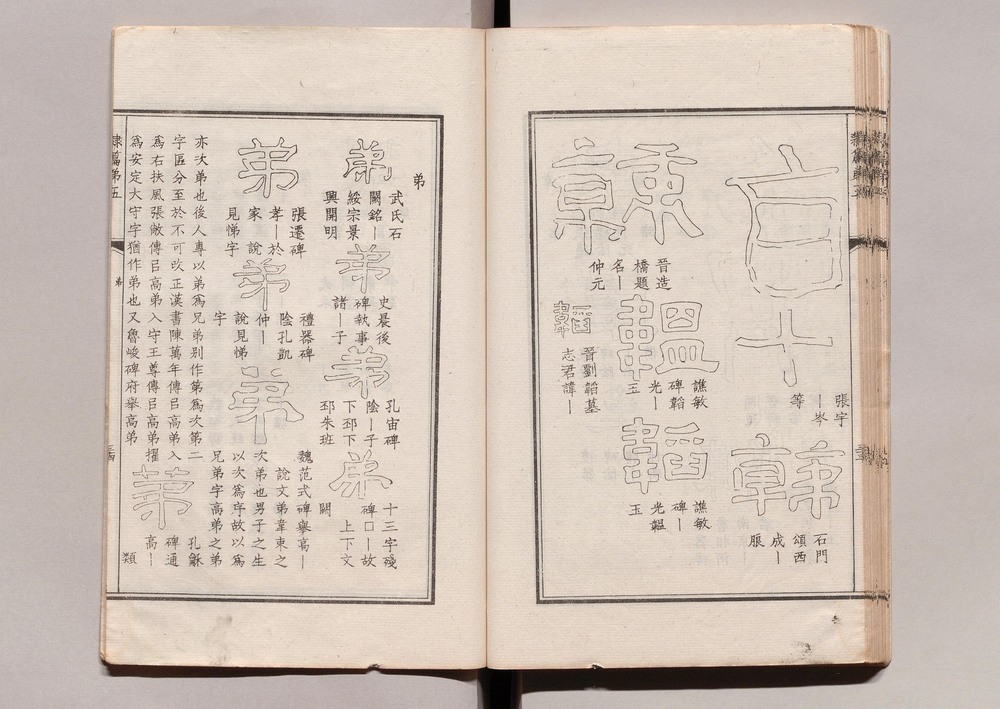 張宇
｜岑
等
石門
頌西
成｜
韔
晉造
橋題
名｜
仲元
譙敏
碑韜
光｜
玉
譙敏
碑｜
光韞
玉
晉劉韜墓
志君諱｜
弟
武氏石
闕銘｜
綏宗景
興開明
弟
史晨後
碑執事
諸｜子
弟
孔宙碑
陰｜子
下邳下
邳朱班
弟
十三字殘
碑口｜故
上下文
闕
弟
張遷碑
孝｜於
家 說
見悌字
弟
禮器碑
陰孔凱
仲｜
說見悌
字
弟
魏范式碑舉高｜
說文弟韋束之
次弟也男子之生
以次為序故以為
兄弟字高弟之弟
亦次弟也後人專以弟為兄弟別作第為次第二
字區分至於不可改正漢書陳萬年傳㠯高弟入
為右扶風張敞傳㠯高弟入守王尊傳㠯高弟擢
為安定大守字猶作弟也又魯峻碑府舉高弟
第
孔龢
碑通
高｜
類
隸篇第五
弟